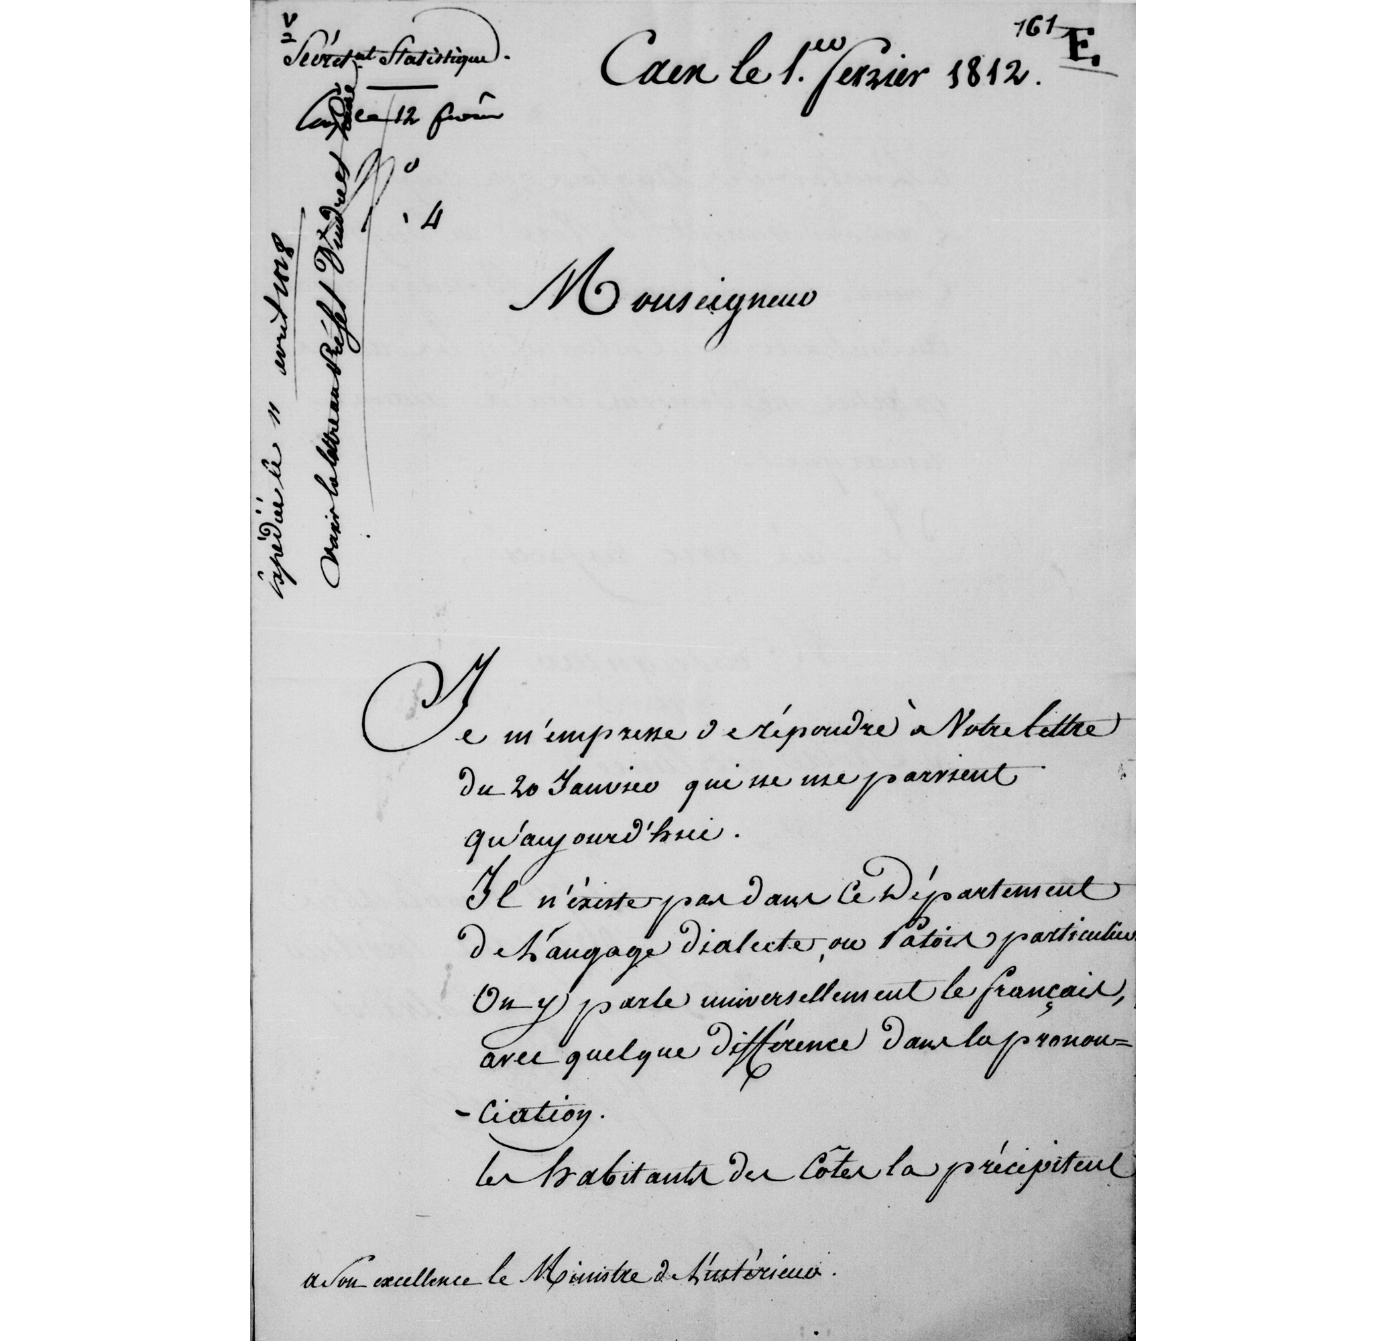 161
E.
Sécret.at Statistique.
12
N.o
4
Caen le 1.er fevrier 1812.
Expediée le 11 avril 1818
voir la lettre au Préfet
Monseigneur
Je m'empresse de répondre à Votre lettre
du 20 Janvier qui ne me parvient
qu'aujourd'hui.
Il n'éxiste pas dans ce Département
de Langage dialecte, ou Patois particulier
On y parle universellement le français,
avec quelque différence dans la pronon=
-ciation.
les habitants des Côtes la précipitent
a Son excellence le Ministre de L'intérieur.